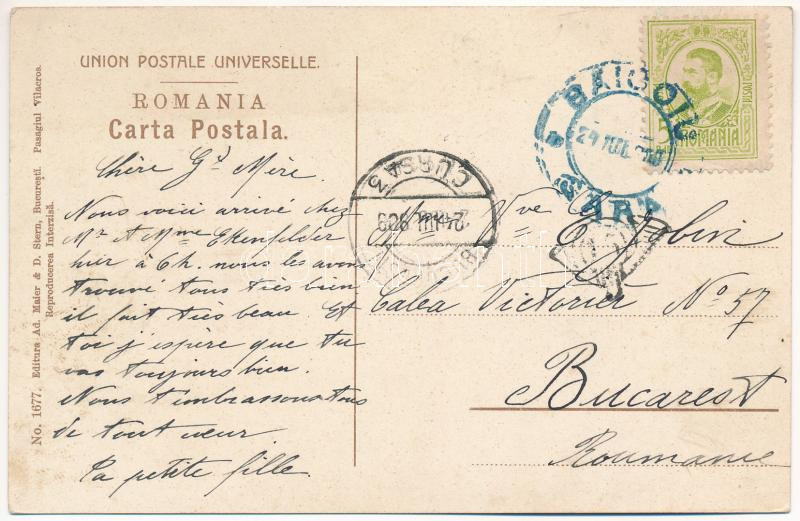 UNION POSTALE UNIVERSELLE.
ROMANIA
Carta Postala.
No. 1677. Editura Ad. Maier & D. Stern, Bucureşti. Pasagiul Vilacros.
Reproducerea Interzisă.
Chère Gd Mère.
Nous voici arrivé chez
Mr A Mme Ekenfelder
hier à 6h. nous les avons
trouvé tous très bien
il fait très beau. Et
toi j'espère que tu
vas toujours bien.
Nous t'embrassons tous
de tout cœur.
ta petite fille.
CURSA 3
BAICOIU
GARA
ROMANIA
Mme Vve C. Jobin
Calea Victoriei No 57
Bucarest
Roumanie